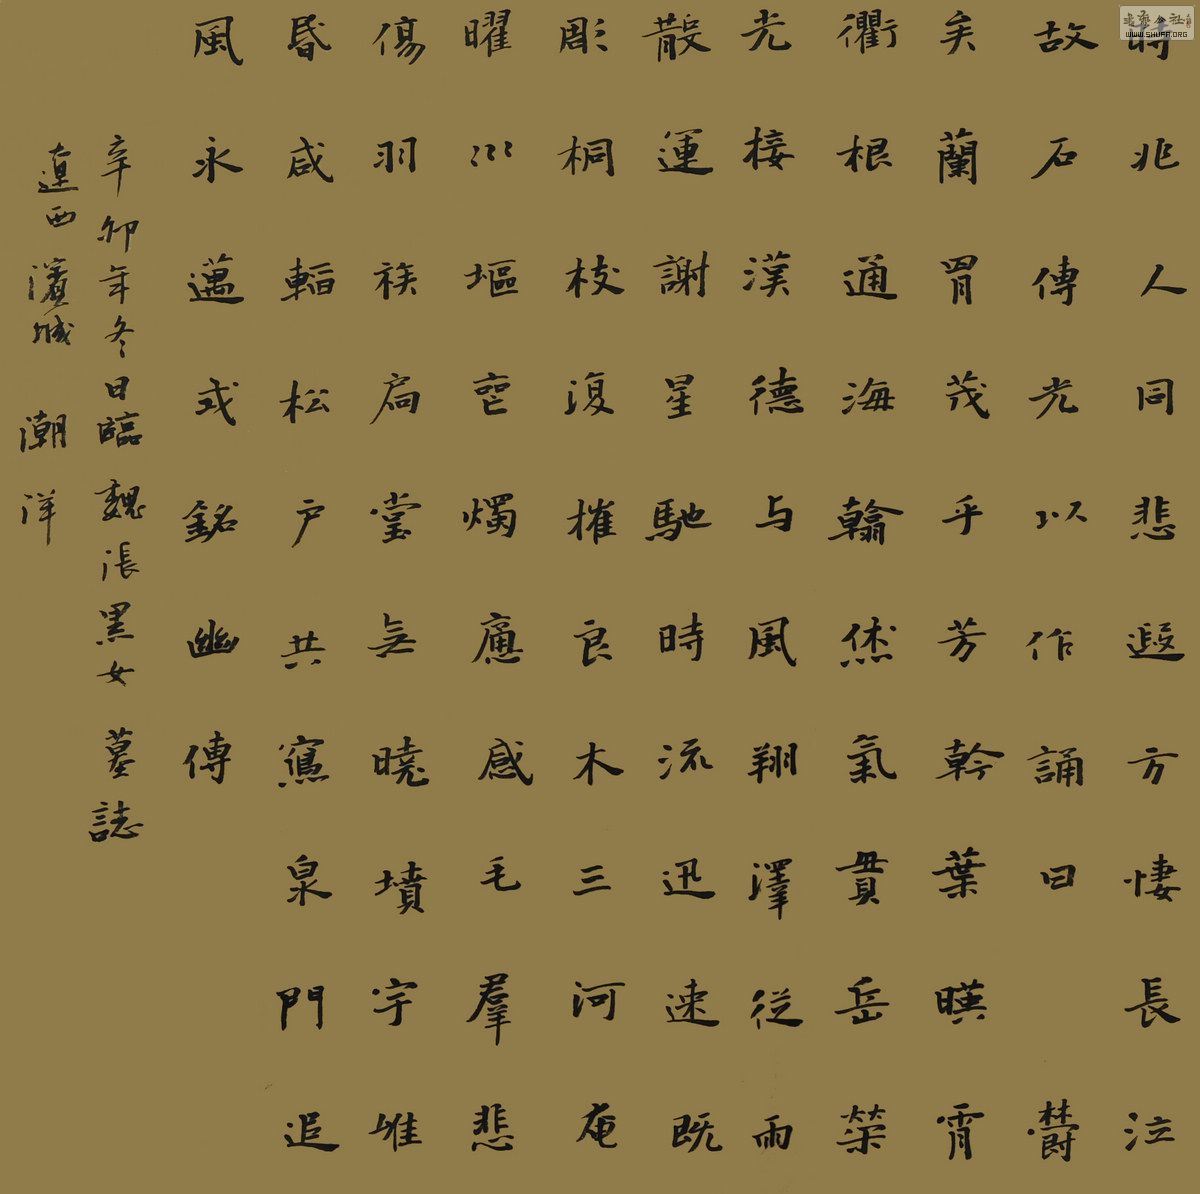 時兆人同悲遐方悽長泣
故石傳光以作誦曰 欝
矣蘭胃茂乎芳幹葉暎霄
衢根通海翰烋氣貫岳榮
光接漢德与風翔澤從雨
散運謝星馳時流迅速既
彫桐枝復摧良木三河奄
曜巛塸燭應感毛羣悲
傷羽族扃堂无曉墳宇唯
昏咸韜松户共寢泉門追
風永邁式銘幽傳
辛卯年冬日臨魏張黑女墓誌
遼西濱城 潮洋
WWW.SHUFA.ORG